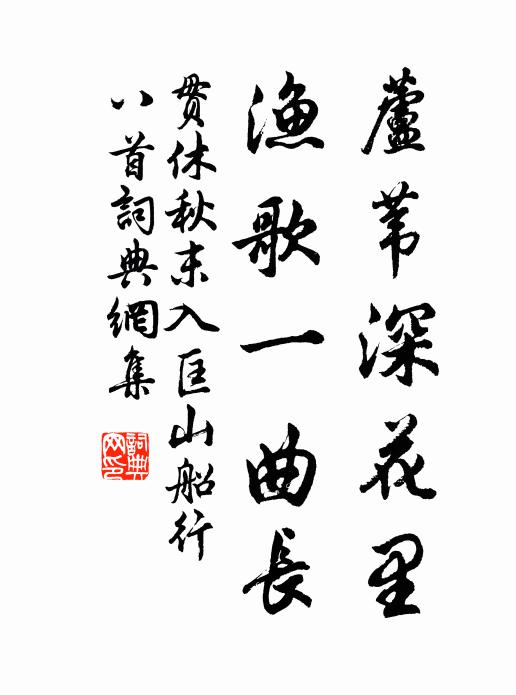 蘆葦深花里
漁歌一曲長
貫休秋末入匡山船行
八首詞典網集
詞典網印